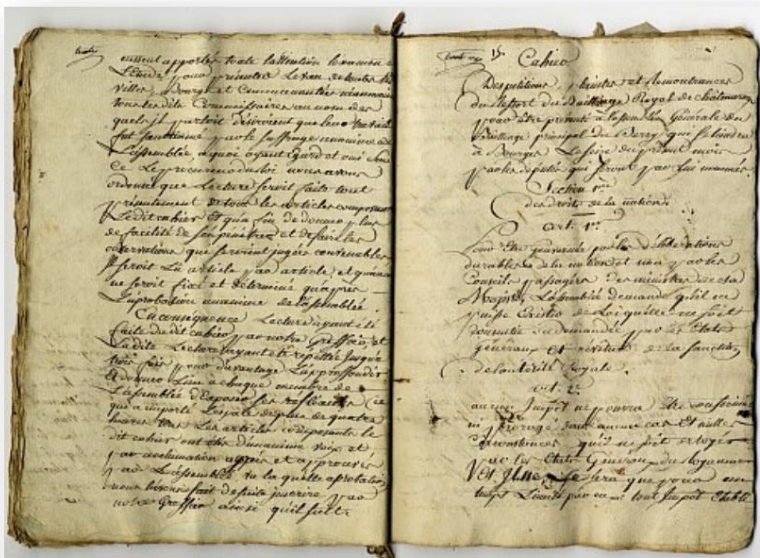 eussent apportés toute l'attention
l'Etude pour
Villes, Bourgs et Communautés
tous les dits Commissaires au nom des
quels il portoit
fut sanctionné par le suffrage unanime de
L'assemblée, a quoi ayant Egard et oui
Ce Le procureur du Roi nous avons
ordonné que Lecture seroit faite tout
présentement de tous les articles composant
Ledit cahier Et qu'a fin de donner plus
de facilité de et de faire les
observations que seroient jugées convenables
Il seroit Lu article par article, et
ne seroit fixé et déterminé qu'après
L'aprobation unanime de l'assemblée
En conséquence Lecture ayant été
faite du dit cahier par notre Greffier, et
La dite Lecture ayant été repettée jusqu'a
trois fois pour davantage L'approffondir
Et donner Lieu a chaque membre de
L'assemblée d'Exposer ses reflexions, Ce
qui a emporté L'espace de plus de quatre
heures, tous Les articles composants le
dit cahier ont été d'unanime voix et
par acclamation et approuvés
par L'assemblée, vu la quelle aprobation
nous avons fait de suite inscrire par
notre Greffier ainsi qu'il suit.
Cahier
Des petitions, plaintes et Remontrances
du Ressort du Bailliage Royal de châteauroux
pour Etre présenté a l'assemblée Générale du
Bailliage principal du Berry qui se tiendra
a Bourges Le seize du présent mois
par les députés qui seront par lui nommés
Section 1ere
des droits de la nation.
art. 1er
Pour Etre gouvernée par les délibérations
durables de la nation et non par les
Conseils passagers des ministres de sa
Majesté, L'assemblée demande qu'il ne
puisse Existe de Loi qu'elle ne soit
consentie ou demandée par les Etats
généraux Et revêtue de la sanction
de l'autorité Royale.
art. 2e
aucun Impôt ne pourra Etre
ni prorogé sous aucun cas Et
circonstances qu'il ne soit octroyé
par les Etats Généraux du Royaume
que pour un
temps Limité par eux tout Impôt Etabli